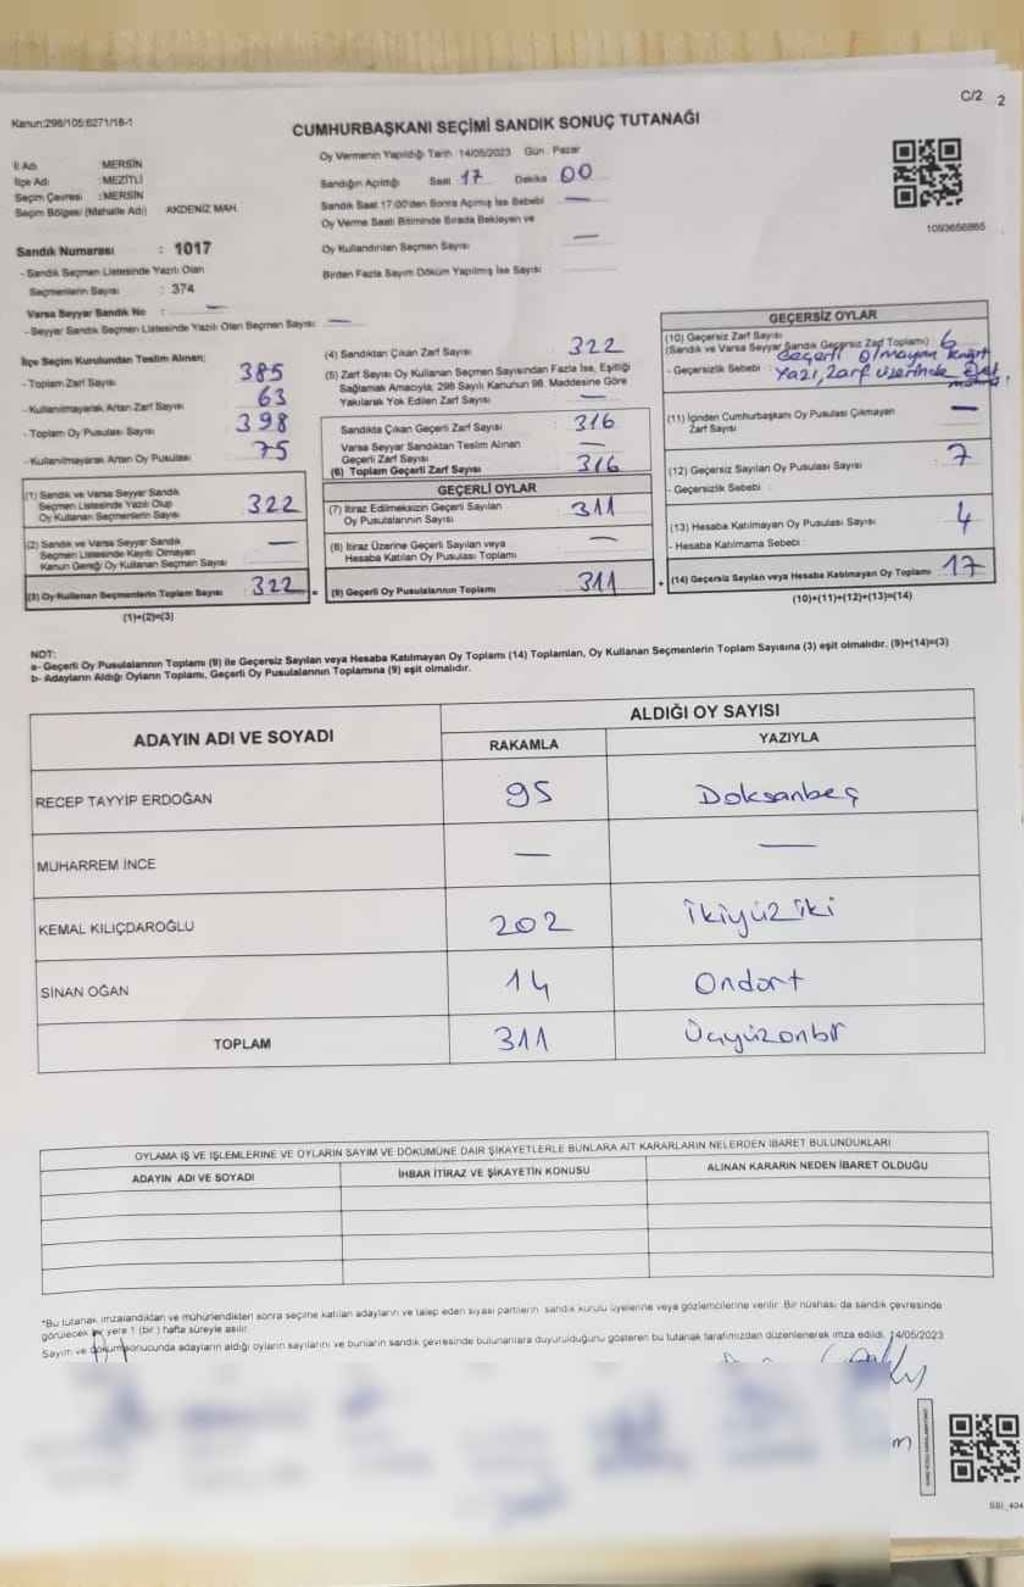 C/2 2
Kanun:298/105:6271/18-1
CUMHURBAŞKANI SEÇİMİ SANDIK SONUÇ TUTANAĞI
İl Adı : MERSİN
İlçe Adı : MEZİTLİ
Seçim Çevresi : MERSİN
Seçim Bölgesi (Mahalle Adı) AKDENİZ MAH.
Oy Vermenin Yapıldığı Tarih 14/05/2023 Gün : Pazar
Sandığın Açıldığı Saat 17 Dakika 00
Sandık Saat 17:00'den Sonra Açılmış İse Sebebi —
Oy Verme Saati Bitiminde Sırada Bekleyen ve
Oy Kullandırılan Seçmen Sayısı —
Birden Fazla Sayım Döküm Yapılmış İse Sayısı
1093656865
Sandık Numarası : 1017
- Sandık Seçmen Listesinde Yazılı Olan
Seçmenlerin Sayısı : 374
Varsa Seyyar Sandık No : —
- Seyyar Sandık Seçmen Listesinde Yazılı Olan Seçmen Sayısı: —
İlçe Seçim Kurulundan Teslim Alınan;
- Toplam Zarf Sayısı 385
- Kullanılmayarak Artan Zarf Sayısı 63
- Toplam Oy Pusulası Sayısı 398
- Kullanılmayarak Artan Oy Pusulası 75
(1) Sandık ve Varsa Seyyar Sandık
Seçmen Listesinde Yazılı Olup
Oy Kullanan Seçmenlerin Sayısı 322
(2) Sandık ve Varsa Seyyar Sandık
Seçmen Listesinde Kayıtlı Olmayan
Kanun Gereği Oy Kullanan Seçmen Sayısı —
(3) Oy Kullanan Seçmenlerin Toplam Sayısı 322 =
(1)+(2)=(3)
(4) Sandıktan Çıkan Zarf Sayısı 322
(5) Zarf Sayısı Oy Kullanan Seçmen Sayısından Fazla İse, Eşitliği
Sağlamak Amacıyla, 298 Sayılı Kanunun 98. Maddesine Göre
Yakılarak Yok Edilen Zarf Sayısı —
Sandıkta Çıkan Geçerli Zarf Sayısı : 316
Varsa Seyyar Sandıktan Teslim Alınan
Geçerli Zarf Sayısı —
(6) Toplam Geçerli Zarf Sayısı 316
GEÇERLİ OYLAR
(7) İtiraz Edilmeksizin Geçerli Sayılan
Oy Pusulalarının Sayısı 311
(8) İtiraz Üzerine Geçerli Sayılan veya
Hesaba Katılan Oy Pusulası Toplamı —
(9) Geçerli Oy Pusulalarının Toplamı 311 +
GEÇERSİZ OYLAR
(10) Geçersiz Zarf Sayısı
(Sandık ve Varsa Seyyar Sandık Geçersiz Zarf Toplamı) 6
- Geçersizlik Sebebi : Geçerli olmayan kağıt
Yazı, zarf üzerinde
(11) İçinden Cumhurbaşkanı Oy Pusulası Çıkmayan
Zarf Sayısı —
(12) Geçersiz Sayılan Oy Pusulası Sayısı 7
- Geçersizlik Sebebi :
(13) Hesaba Katılmayan Oy Pusulası Sayısı 4
- Hesaba Katılmama Sebebi :
(14) Geçersiz Sayılan veya Hesaba Katılmayan Oy Toplamı 17
(10)+(11)+(12)+(13)=(14)
NOT:
a- Geçerli Oy Pusulalarının Toplamı (9) ile Geçersiz Sayılan veya Hesaba Katılmayan Oy Toplamı (14) Toplamları, Oy Kullanan Seçmenlerin Toplam Sayısına (3) eşit olmalıdır. (9)+(14)=(3)
b- Adayların Aldığı Oyların Toplamı, Geçerli Oy Pusulalarının Toplamına (9) eşit olmalıdır.
ADAYIN ADI VE SOYADI
ALDIĞI OY SAYISI
RAKAMLA YAZIYLA
RECEP TAYYİP ERDOĞAN 95 Doksanbeş
MUHARREM İNCE — —
KEMAL KILIÇDAROĞLU 202 İkiyüz iki
SİNAN OĞAN 14 Ondört
TOPLAM 311 Üçyüzonbir
OYLAMA İŞ VE İŞLEMLERİNE VE OYLARIN SAYIM VE DÖKÜMÜNE DAİR ŞİKAYETLERLE BUNLARA AİT KARARLARIN NELERDEN İBARET BULUNDUKLARI
ADAYIN ADI VE SOYADI İHBAR İTİRAZ VE ŞİKAYETİN KONUSU ALINAN KARARIN NEDEN İBARET OLDUĞU
*Bu tutanak imzalandıktan ve mühürlendikten sonra seçime katılan adayların ve talep eden siyasi partilerin sandık kurulu üyelerine veya gözlemcilerine verilir. Bir nüshası da sandık çevresinde
görülecek bir yere 1 (bir) hafta süreyle asılır.
Sayım ve döküm sonucunda adayların aldığı oyların sayılarını ve bunların sandık çevresinde bulunanlara duyurulduğunu gösteren bu tutanak tarafımızdan düzenlenerek imza edildi. 14/05/2023